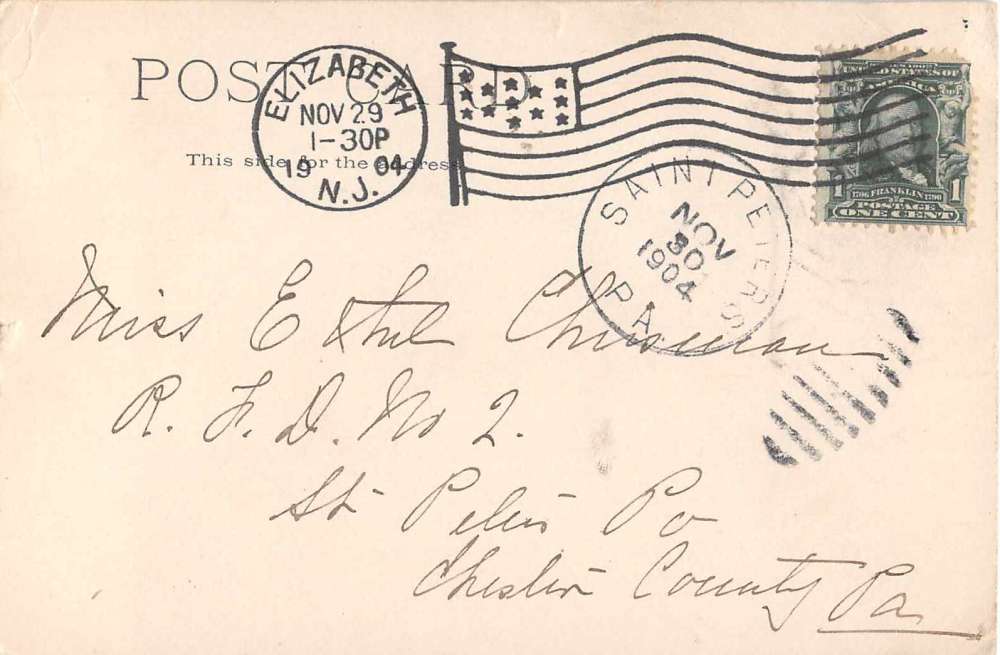 POST CARD
This side for the address
ELIZABETH
NOV 29
1-30P
19 04
N.J.
SAINT PETERS
NOV
30
1904
PA
UNITED STATES OF
AMERICA
1 1
1706 FRANKLIN 1790
POSTAGE
ONE CENT
Miss Ethel Chrisman
R. F. D. No 2.
St Peters Po
Chester County Pa